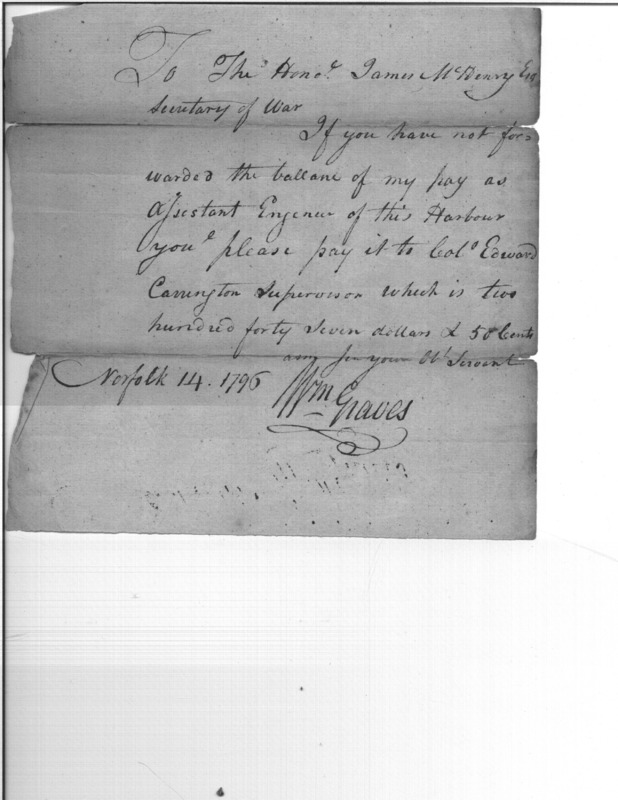 To The Hono.r James McHenry Esq
Secretary of War
If you have not for=
warded the ballane of my pay as
Assestant Engeneer of this Harbour
you.e please pay it to Col.o Edward
Carrington Supervisor which is two
hundred forty Seven dollars & 50 Cents
Sir your Ob.t Servent
Norfolk 14. 1796
Wm Graves